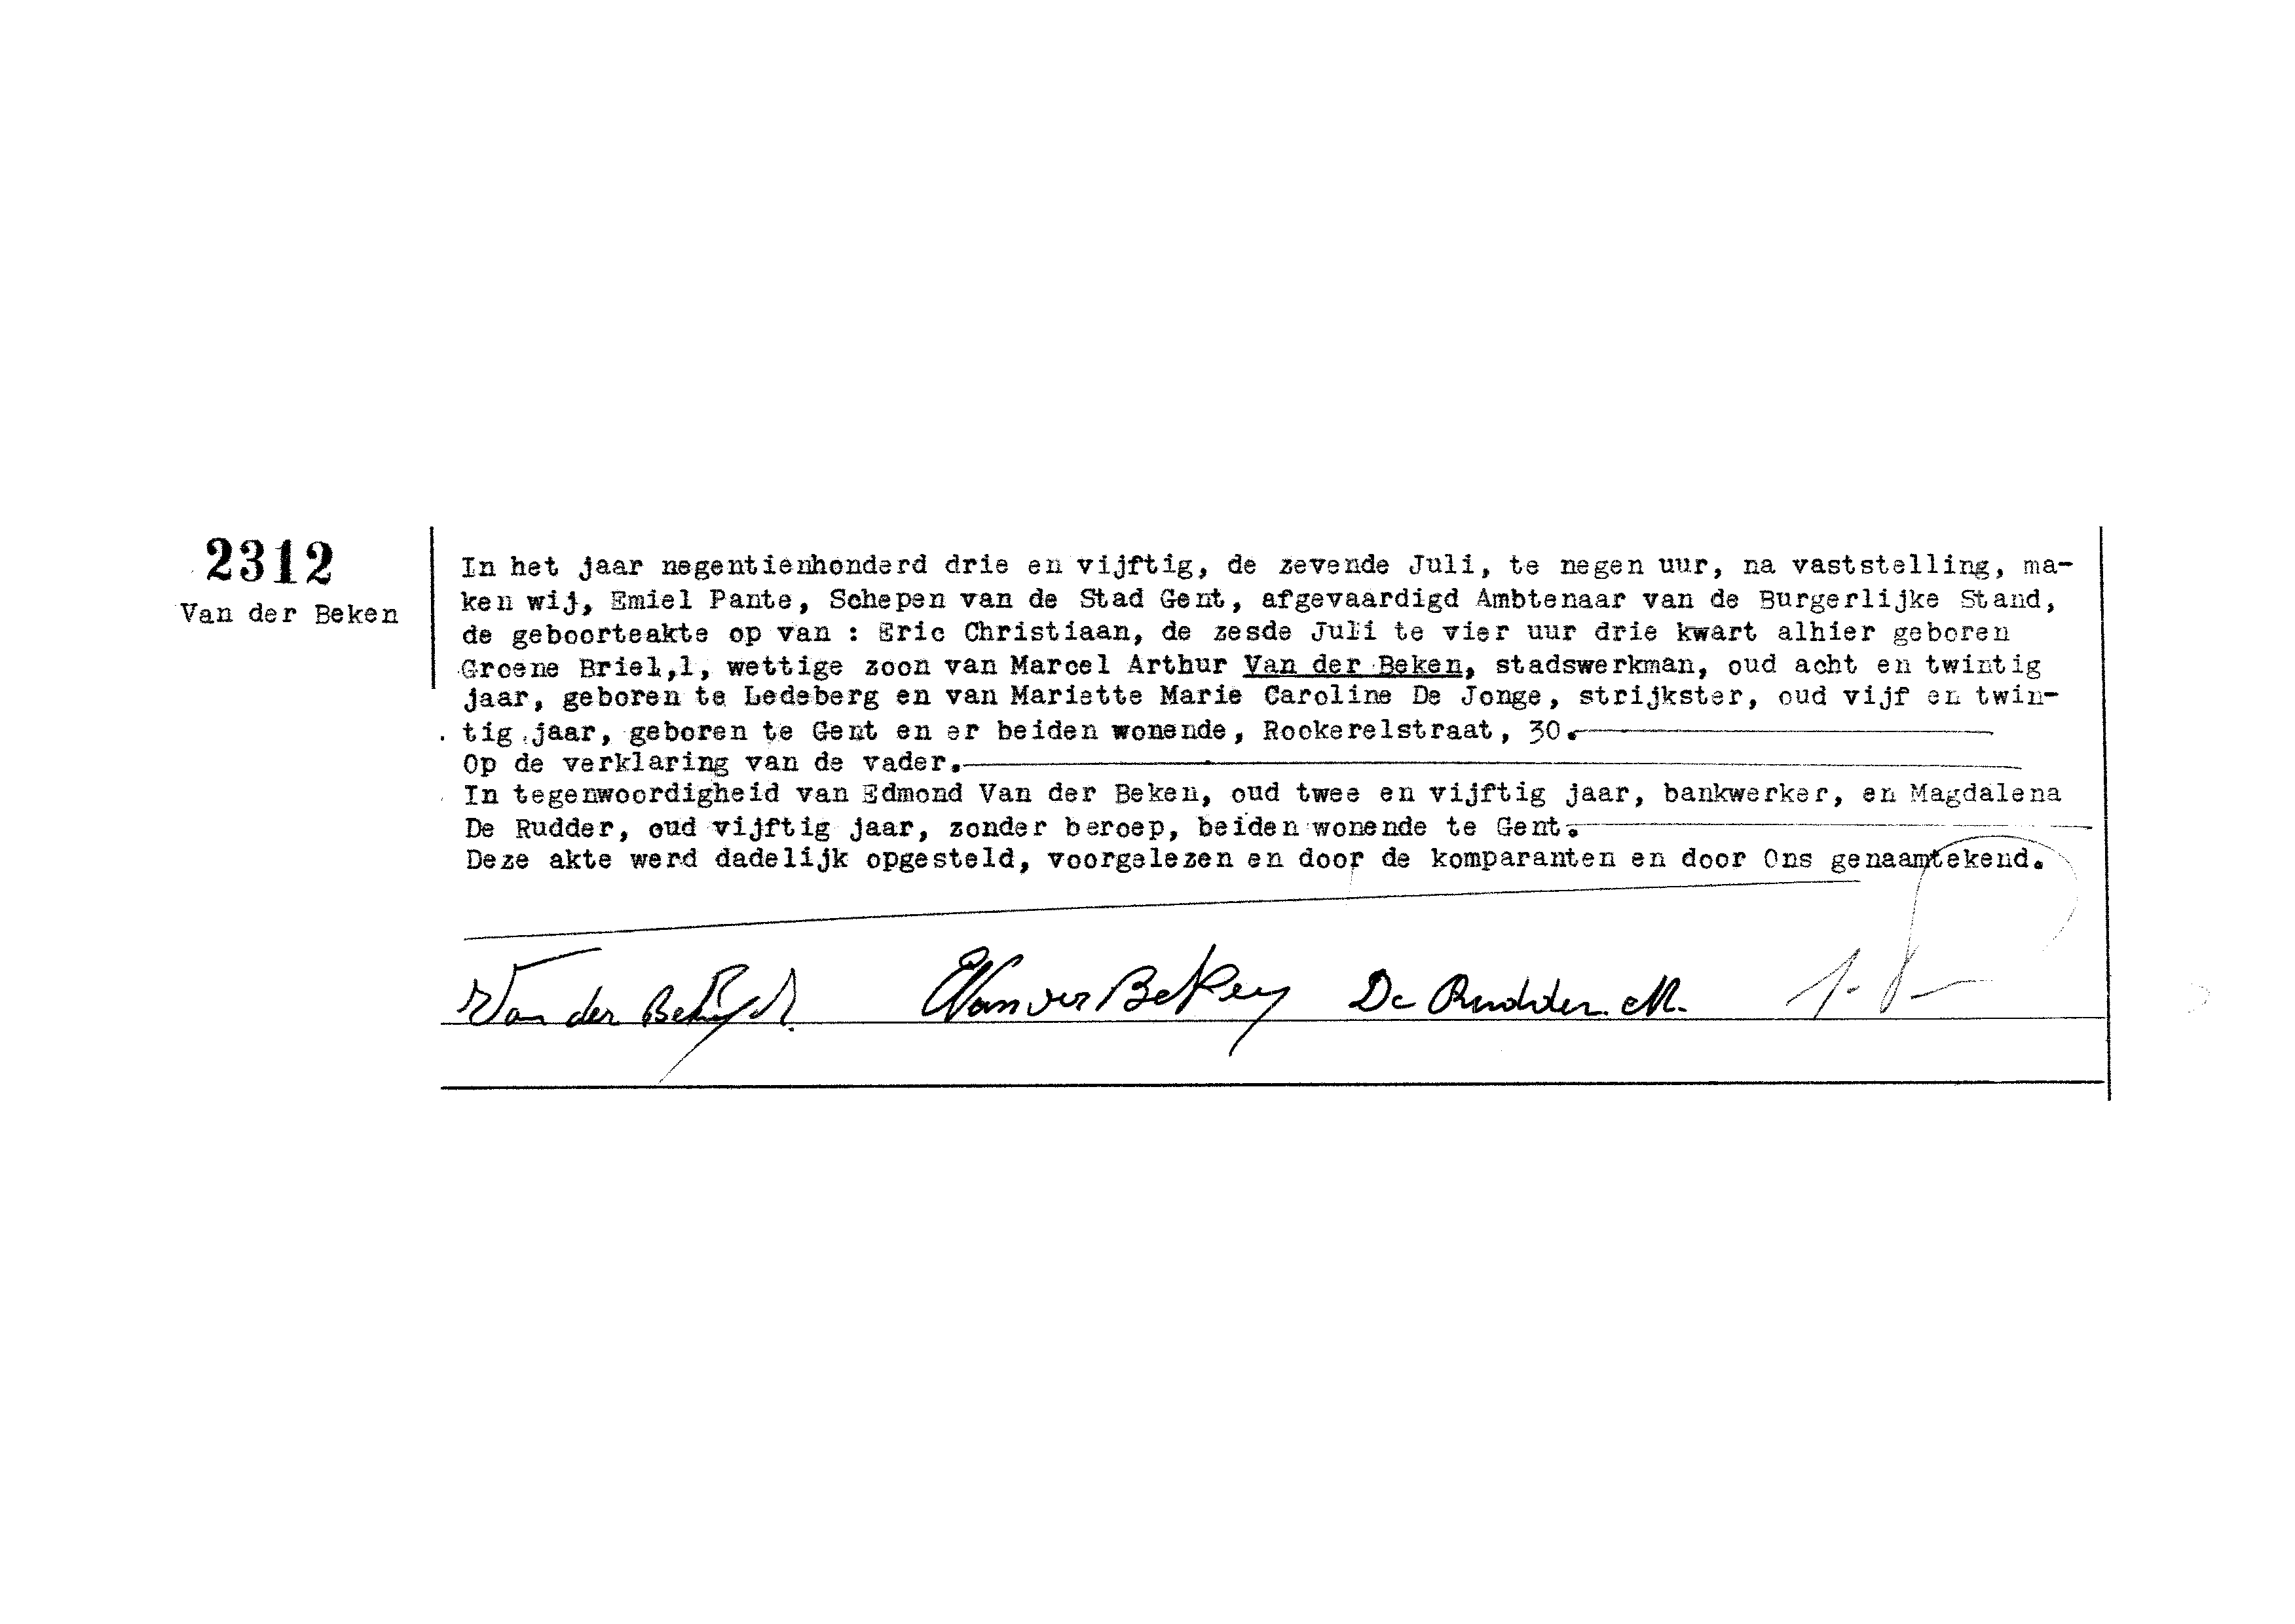 2312
Van der Beken
In het jaar negentienhonderd drie en vijftig, de zevende Juli, te negen uur, na vaststelling, ma-
ken wij, Emiel Pante, Schepen van de Stad Gent, afgevaardigd Ambtenaar van de Burgerlijke Stand,
de geboorteakte op van : Eric Christiaan, de zesde Juli te vier uur drie kwart alhier geboren
Groene Briel,1, wettige zoon van Marcel Arthur Van der Beken, stadswerkman, oud acht en twintig
jaar, geboren te Ledeberg en van Mariette Marie Caroline De Jonge, strijkster, oud vijf en twin-
tig jaar, geboren te Gent en er beiden wonende, Rockerelstraat, 30.
Op de verklaring van de vader.
In tegenwoordigheid van Edmond Van der Beken, oud twee en vijftig jaar, bankwerker, en Magdalena
De Rudder, oud vijftig jaar, zonder beroep, beiden wonende te Gent.
Deze akte werd dadelijk opgesteld, voorgelezen en door de komparanten en door Ons genaamtekend.
Van der Beken E Van der Beken De Rudder. M.